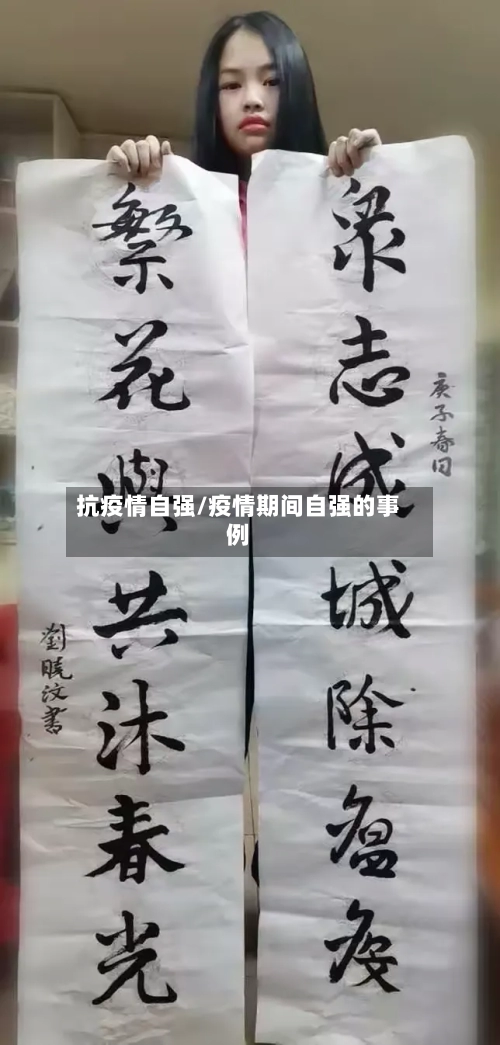 庚子春日
眾志成城除瘟疫
繁花與共沐春光
劉曉汶書
抗疫情自强/疫情期间自强的事
例